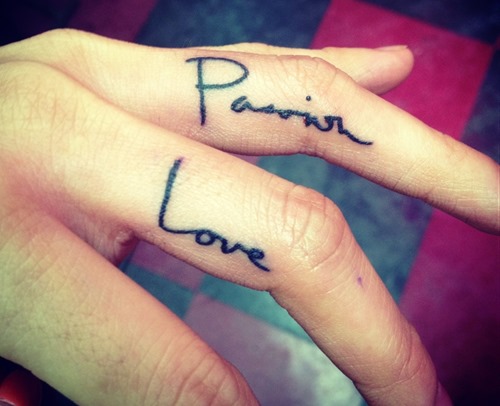 Passion
Love